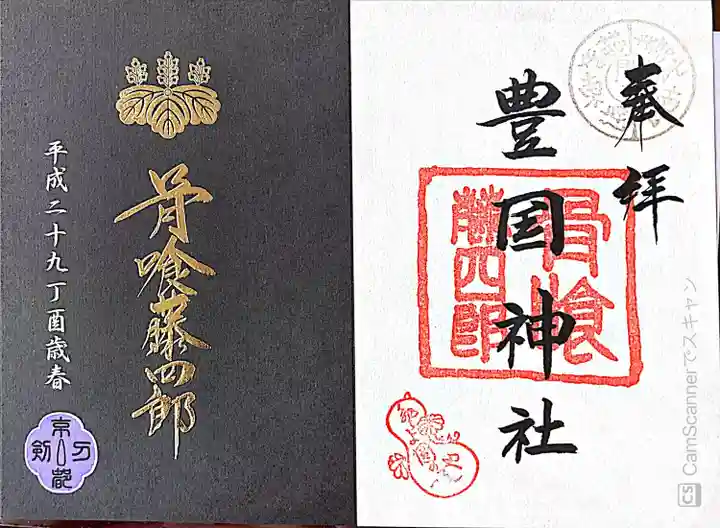 骨喰藤四郎
平成二十九丁酉歳春
京都
刀剣
奉拝
豊国神社
骨喰
藤四郎
CamScannerでスキャン
CS